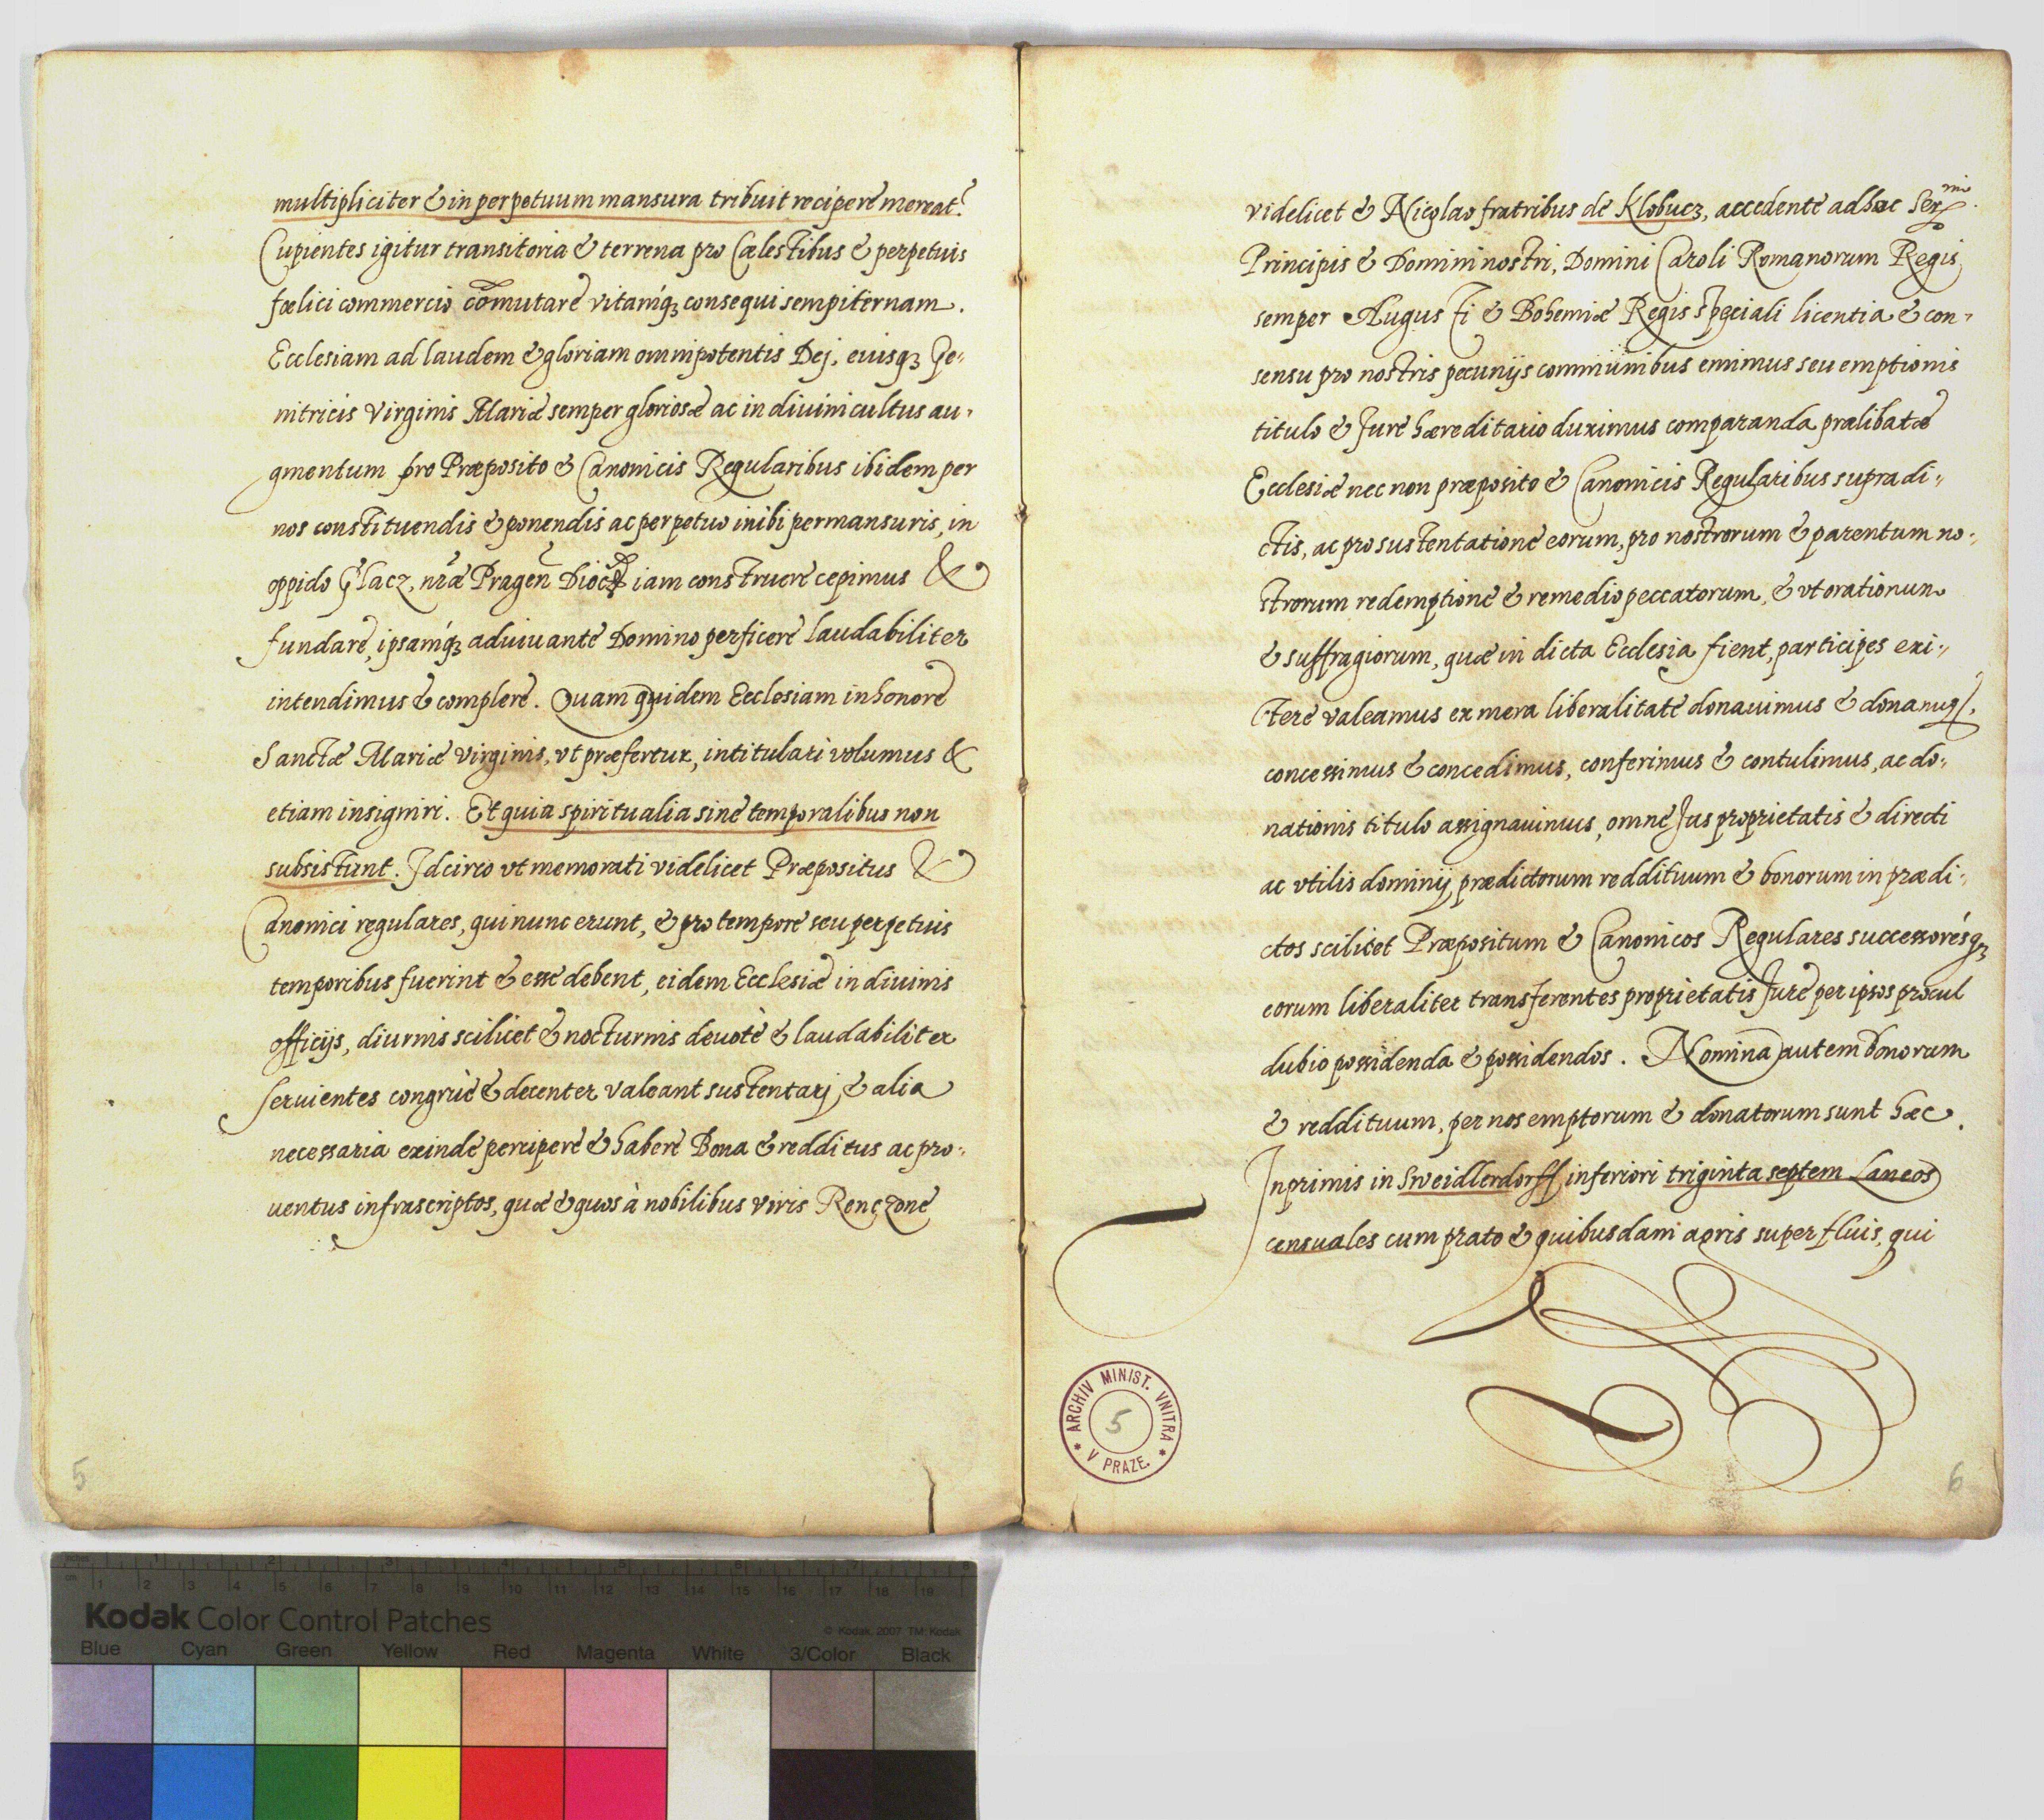 multipliciter & in perpetuum mansura tribuit recipere mereat?
Cupientes igitur transitoria & terrena pro Cælestibus & perpetuis
fœlici commercio cōmutare vitamq́ꝫ consequi sempiternam.
Ecclesiam ad laudem & gloriam omnipotentis Dej, eiusqꝫ Ge-
nitricis Virginis Mariæ semper gloriosæ ac in diuini cultus au-
gmentum pro Præposito & Canonicis Regularibus ibidem per
nos constituendis & ponendis ac perpetuo inibi permansuris, in
oppido Glacz, nr̄æ Pragen̄ Dioc iam construere cepimus &
fundare, ipsamq́ꝫ adiuuante Domino perficere laudabiliter
intendimus & complere. Quam quidem Ecclesiam in honore
Sanctæ Mariæ Virginis, vt præfertur, intitulari volumus &
etiam insigniri. Et quia spiritualia sine temporalibus non
subsistunt. Idcirco vt memorati videlicet Præpositus &
Canonici regulares, qui nunc erunt, & pro tempore seu perpetuis
temporibus fuerint & esse debent, eidem Ecclesiæ in diuinis
officijs, diurnis scilicet & nocturnis deuotè & laudabiliter
seruientes congruè & decenter valeant sustentarj, & alia
necessaria exinde percipere & habere Bona & redditus ac pro-
uentus infrascriptos, quæ & quos à nobilibus viris Renczone
5
videlicet & Nicolao fratribus de Klobucz, accedente adhæc Ser.mi
Principis & Domini nostri, Domini Caroli Romanorum Regis
semper Augusti & Bohemiæ Regis speciali licentia & con-
sensu pro nostris pecunijs communibus emimus seu emptionis
titulo & Jure hæreditario duximus comparanda prælibatæ
Ecclesiæ nec non præposito & Canonicis Regularibus supradi-
ctis, ac pro sustentatione eorum, pro nostrorum & parentum no-
strorum redemptione & remedio peccatorum, & vt orationum
& suffragiorum, quæ in dicta Ecclesia fient, participes exi-
stere valeamus ex mera liberalitate donauimus & donamus,
concessimus & concedimus, conferimus & contulimus, ac do-
nationis titulo assignauimus, omne Jus proprietatis & directi
ac vtilis dominij, prædictorum reddituum & bonorum in prædi-
ctos scilicet Præpositum & Canonicos Regulares successoresq́ꝫ
eorum liberaliter transferentes proprietatis Jure per ipsos procul
dubio possidenda & possidendos. Nomina autem bonorum
& reddituum, per nos emptorum & donatorum sunt hæc.
Inprimis in Sweidlerdorff inferiori triginta septem Laneos
censuales cum prato & quibusdam agris superfluis, qui
ARCHIV MINIST. VNITRA
V PRAZE.
5
6
Kodak Color Control Patches
© Kodak, 2007 TM: Kodak
Blue Cyan Green Yellow Red Magenta White 3/Color Black